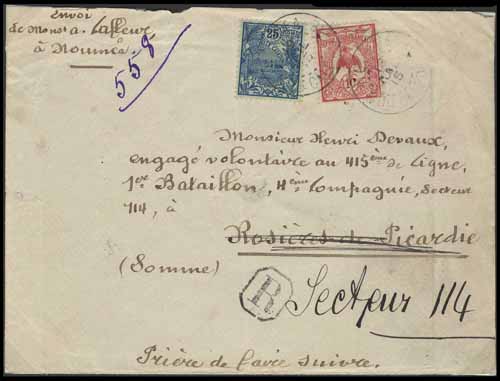 Envoi
de Monsr A. Laffleur
à Nouméa
558
25
10
Monsieur Henri Devaux,
engagé volontaire au 415ème de Ligne,
1er Bataillon, 4ème Compagnie, Secteur
114, à
Rosières de Picardie
(Somme)
Secteur 114
R
Prière de faire suivre.